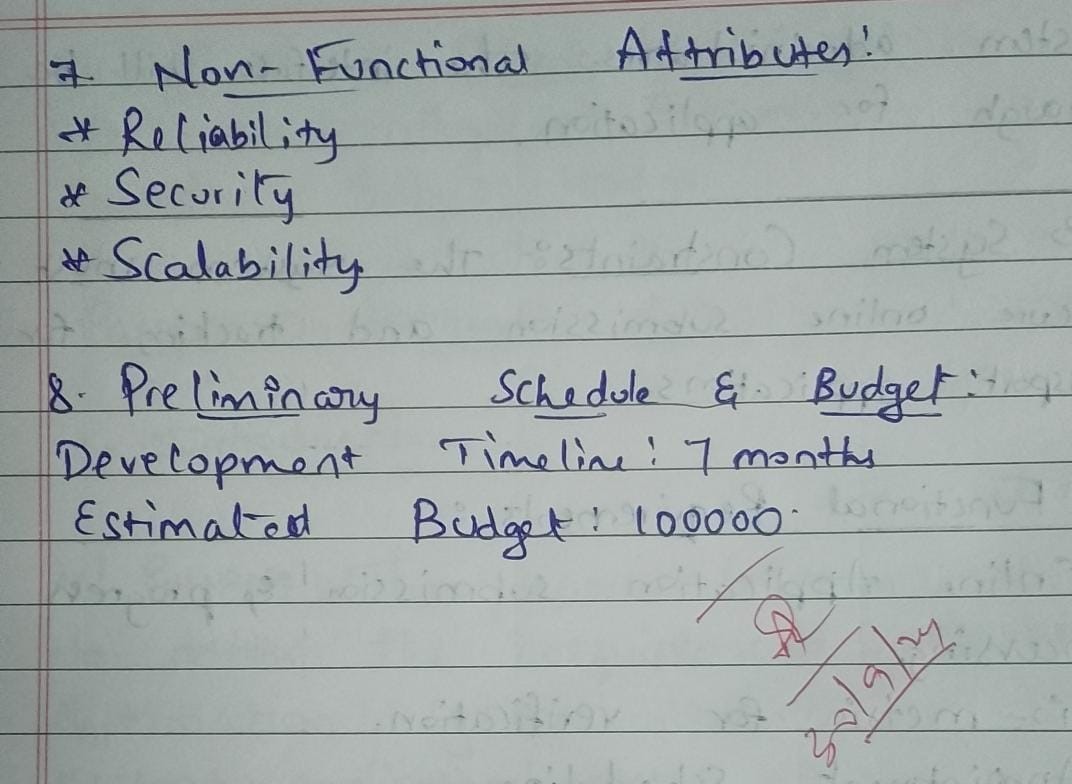 7 Non-Functional Attributes:
* Reliability
* Security
* Scalability
8. Preliminary Schedule & Budget:
Development Timeline: 7 months
Estimated Budget: 100000